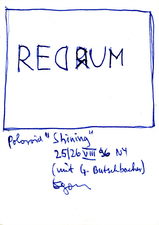 REDRUM
Polaroid "Shining"
25/26 VIII 96 NY
(mit G. Butschbacher)